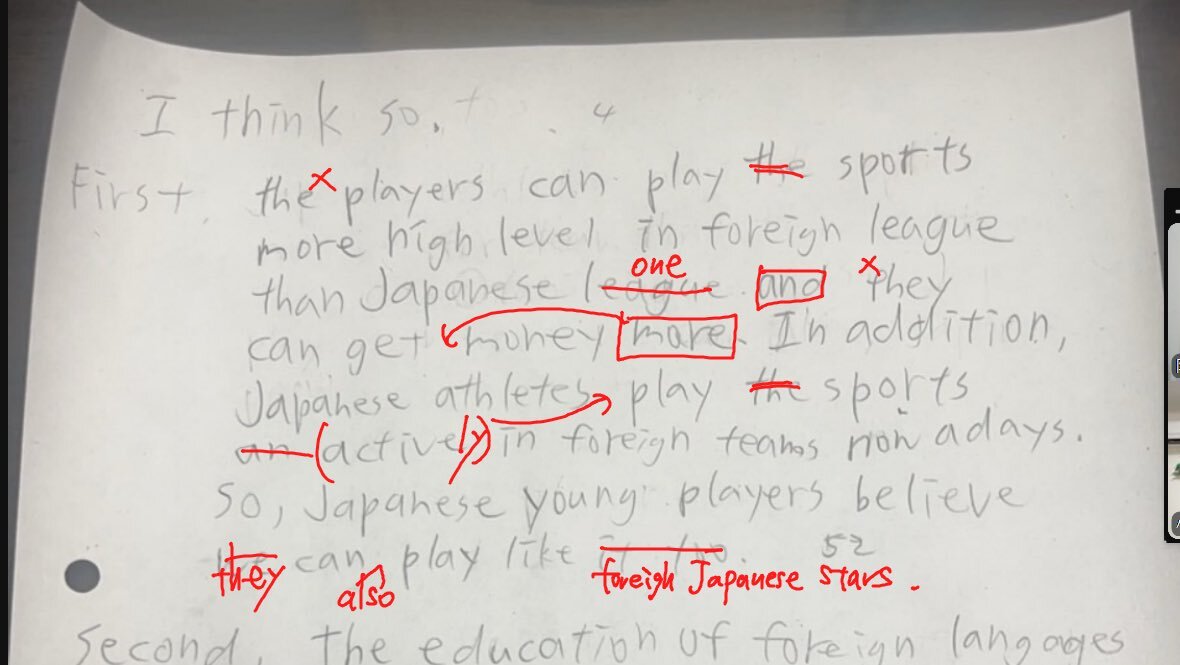 I think so. 4
First, the x players can play the sports
more high level in foreign league
one
than Japanese league. and x they
can get money more. In addition,
Japanese athletes play the sports
an (actively) in foreign teams now adays.
So, Japanese young players believe
can play like it too. 52
they also foreigh Japanese stars.
Second, The education of foreign langages